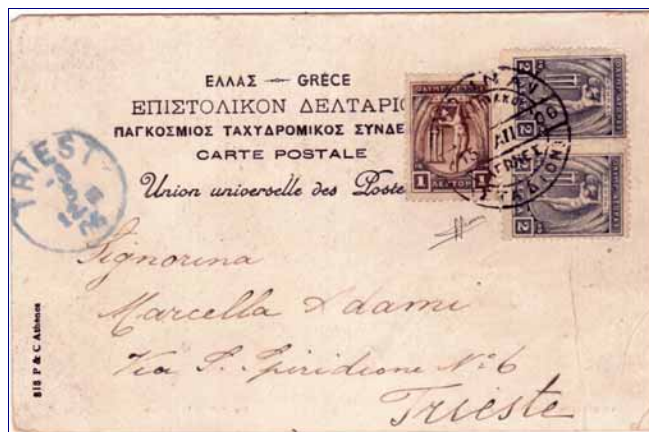 ΕΛΛΑΣ — GRÈCE
ΕΠΙΣΤΟΛΙΚΟΝ ΔΕΛΤΑΡΙΟ
ΠΑΓΚΟΣΜΙΟΣ ΤΑΧΥΔΡΟΜΙΚΟΣ ΣΥΝΔΕ
CARTE POSTALE
Union universelle des Poste
1 ΛΕΠΤΟΝ 1
2 2
2 2
ΑΠ 06
TRIEST
Signorina
Marcella Adami
Via S. Spiridione No 6
Trieste
818 P & C Athènes